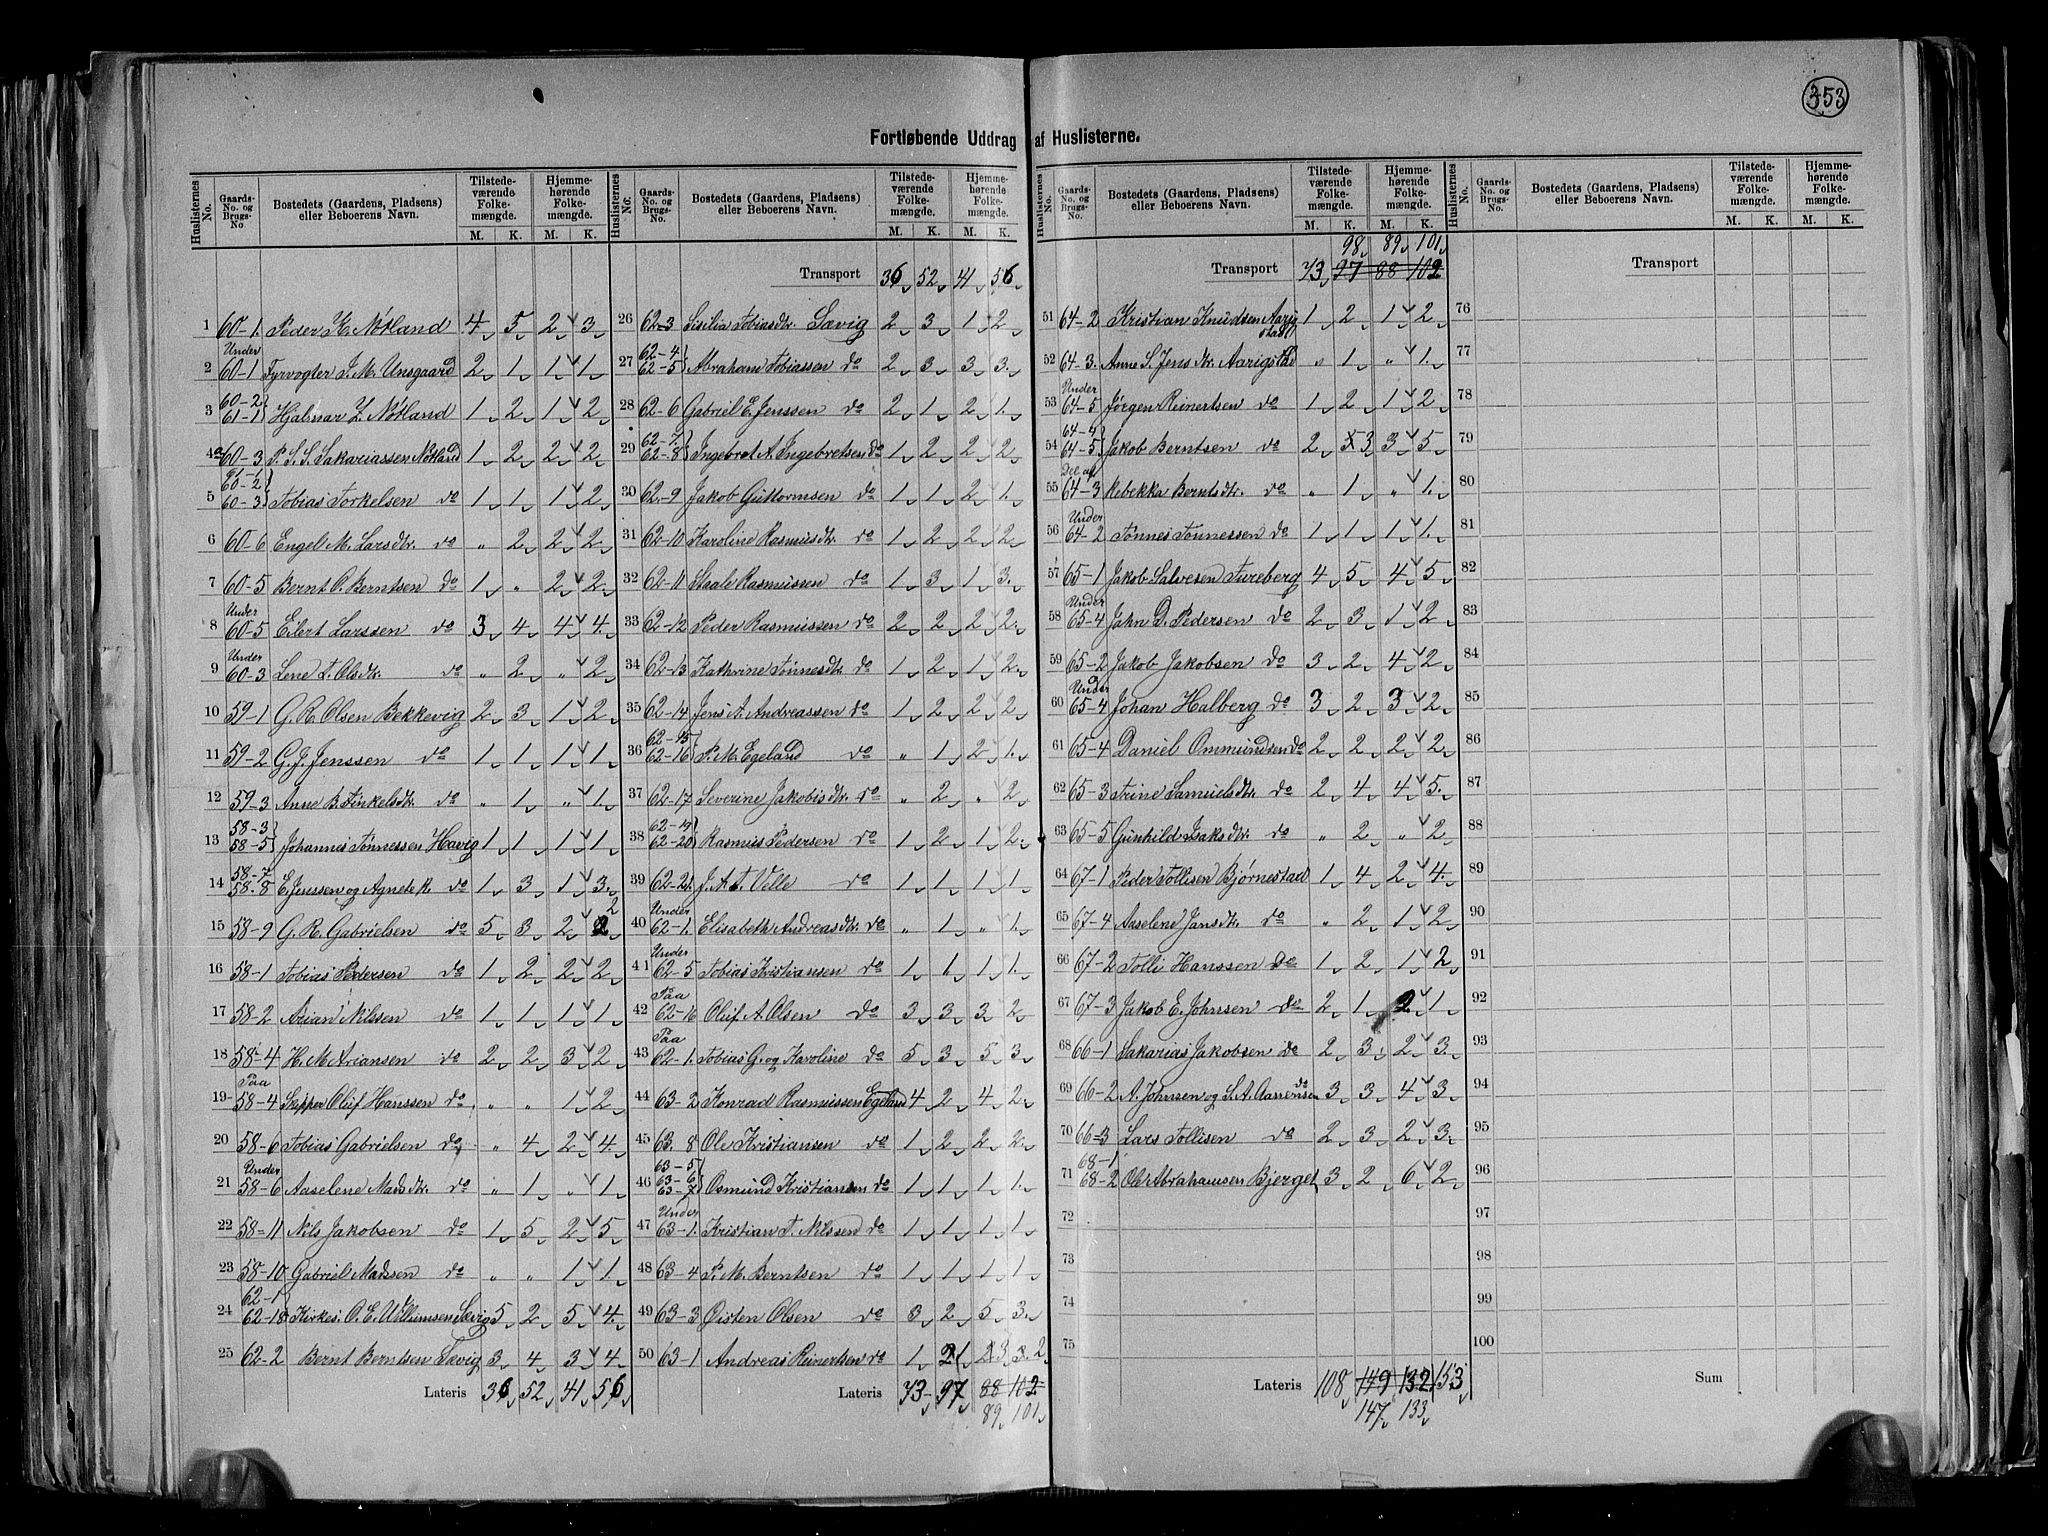 353
Fortløbende Uddrag af Huslisterne.
Huslisternes No. Gaards-No. og Brugs-No Bostedets (Gaardens, Pladsens) eller Beboerens Navn. Tilstedeværende Folkemængde. M. K. Hjemmehørende Folkemængde. M. K.
1 60-1. Peder K. Nótland 4 5 2 3
2 Under 60-1 Fyrvogter J. M. Unsgaard 2 1 1 1
3 60-2 61-1 Hjalmar Z. Nótland 1 2 1 2
4a 60-3 P. S. S. Sakariassen Nótland 1 2 2 2
5 61-1 60-2 60-3 Tobias Torkelsen do 1 1 1 2
6 60-6 Engel M. Larsdtr. do " 2 2 2
7 60-5 Bernt O. Berntsen do 1 " 2 2
8 Under 60-5 Eilert Larssen do 3 4 4 4
9 Under 60-3 Lene T. Olsdtr. do " 2 " 2
10 59-1 G. R. Olsen Bekkevig 2 3 1 2
11 59-2 G. J. Jenssen do 1 1 1 1
12 59-3 Anne B. Tinkelsdtr. do " 1 " 1
13 58-3 58-5 Johannes Tønnessen Havig 1 1 1 1
14 58-7 58-8 E. Jenssen og Agnete R. do 1 3 1 3
15 58-9 G. R. Gabrielsen do 5 3 2 2
16 58-1 Tobias Pedersen do 1 2 2 2
17 58-2 Arian Nilssen do 1 1 1 1
18 58-4 H. M. Ariansen do 2 2 3 2
19 Paa 58-4 Skipper Oluf Hanssen do " " 1 2
20 58-6 Tobias Gabrielsen do " 4 2 4
21 Under 58-6 Aaselene Madsdtr. do " 1 " 1
22 58-11 Nils Jakobsen do 1 5 2 5
23 58-10 Gabriel Madssen do " " 1 1
24 62-1 62-18 Kirkes. O. E. Willumsen Sævig 5 2 5 4
25 62-2 Bernt Berntsen Sævig 3 4 3 4
Lateris 36 52 41 56
Transport 36 52 41 56
26 62-3 Sisilia Tobiasdtr. Sævig 2 3 1 2
27 62-4 62-5 Abraham Tobiassen do 2 3 3 3
28 62-6 Gabriel E. Jenssen do 2 1 2 1
29 62-7 62-8 Ingebret A. Ingebretsen do 1 2 2 2
30 62-9 Jakob Guttormsen do 1 1 2 1
31 62-10 Karoline Rasmusdtr. do 1 2 2 2
32 62-11 Staale Rasmussen do 1 3 1 3
33 62-12 Peder Rasmussen do 2 2 2 2
34 62-13 Kathrine Tønnesdtr. do 1 2 1 2
35 62-14 Jens A. Andreassen do 1 2 2 2
36 62-15 62-16 P. M. Egeland do " 1 2 1
37 62-17 Severine Jakobsdtr. do " 2 " 2
38 62-19 62-20 Rasmus Pedersen do 1 2 1 2
39 62-21 J. A. T. Velle do 1 1 1 1
40 Under 62-1. Elisabeth Andreasdtr. do " 1 " 1
41 Under 62-5 Tobias Kristiansen do 1 1 1 1
42 Paa 62-16 Oluf A. Olsen do 3 3 3 2
43 Paa 62-1. Tobias G. og Karoline do 5 3 5 3
44 63-2 Konrad Rasmussen Egeland 4 2 4 2
45 63.8 Ole Kristiansen do 1 2 2 2
46 63-5 63-6 63-7 Osmund Kristiansen do 1 1 1 1
47 Under 63-1. Kristian T. Nilssen do 1 1 1 1
48 63-4 P. M. Berntsen do 1 1 1 1
49 63-3 Øisten Olsen do 3 2 5 3
50 63-1 Andreas Reinertsen do 1 21 23 3 2
Lateris 73 97 88 102
89 101
98 89 101
Transport 73 97 88 102
51 64-2 Kristian Knudsen Aarigstad 1 2 1 2
52 64-3. Anne S. Jensdtr. Aarigstad " 1 " 1
53 Under 64-5 Jørgen Reinertsen do 1 2 1 2
54 64-4 64-5 Jakob Berntsen do 2 5 3 3 5
55 Del af 64-3 Rebekka Berntsdtr. do " 1 " 1
56 Under 64-2 Tønnes Tønnessen do 1 1 1 1
57 65-1 Jakob Salvesen Tureberg 4 5 4 5
58 Under 65-4 Jahn D. Pedersen do 2 3 1 2
59 65-2 Jakob Jakobsen do 3 2 4 2
60 Under 65-4 Johan Halberg do 3 2 3 2
61 65-4 Daniel Ommundsen do 2 2 2 2
62 65-3 Trine Samuelsdtr. do 2 4 4 5
63 65-5 Gunhild Isaksdtr. do " 2 " 2
64 67-1 Peder Tollisen Bjørnestad 1 4 2 4
65 67-4 Aaselene Jansdtr. do " 2 1 2
66 67-2 Tolli Hanssen do 1 2 1 2
67 67-3 Jakob E. Johnsen do 2 1 2 1
68 66-1 Sakarias Jakobsen do 2 3 2 3
69 66-2 A. Johnsen og S. A. Aanensen do 3 3 4 3
70 66-3 Lars Tollisen do 2 3 2 3
71 68-1 68-2 Ole Abrahamsen Bjerget 3 2 6 2
72
73
74
75
Lateris 108 149 132 153
147 133
Transport
76
77
78
79
80
81
82
83
84
85
86
87
88
89
90
91
92
93
94
95
96
97
98
99
100
Sum